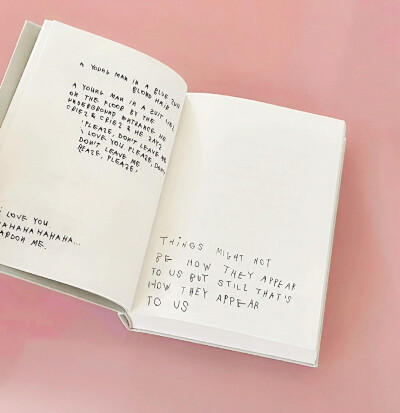 A YOUNG MAN IN A BLUE SUIT
BLOND HAIR
A YOUNG MAN IN A SUIT LIES
ON THE FLOOR BY THE
UNDERGROUND ENTRANCE HE
CRIES & CRIES & HE SAYS
PLEASE, DON'T LEAVE ME
I LOVE YOU PLEASE, DON'T
DON'T LEAVE ME
PLEASE, PLEASE,
I LOVE YOU
HAHAHAHAHAHA...
PARDON ME.
THINGS MIGHT NOT
BE HOW THEY APPEAR
TO US BUT STILL THAT'S
HOW THEY APPEAR
TO US